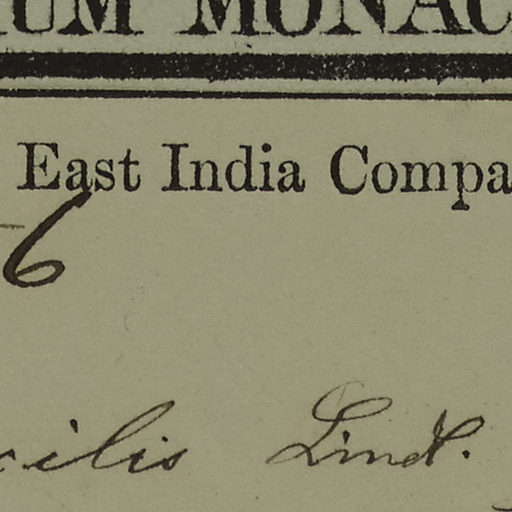 IUM MONAC
East India Compa
6
cilis Lindl.